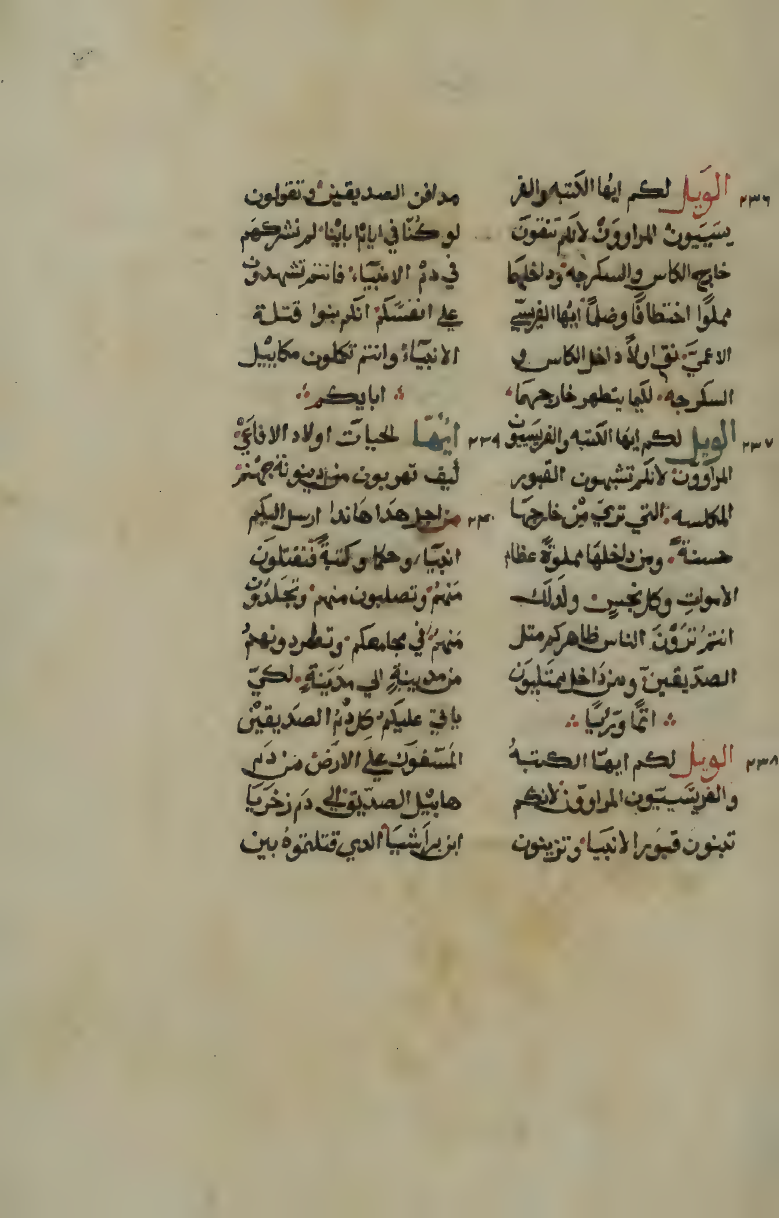 ٢٣٦ الويل لكم ايها الكتبه والفر
يسيون المراوون لانكم تنقون
خارج الكاس والسكرجه وداخلها
مملوا اختطافا وضلما ايها الفريسي
الاعمي نقي اولا داخل الكاس و
السكرجه لكيما يتطهر خارجهما
٢٣٧ الويل لكم ايها الكتبه والفريسيون
المراوون لانكم تشبهون القبور
المكلسه التي تري من خارجها
حسنة ومن داخلها مملوة عظام
الاموات وكل نجس ولدلك
انتم ترون الناس ظاهركم متل
الصديقين ومن داخل ممتليون
اتما وريا
٢٣٨ الويل لكم ايها الكتبه
والفريسيون المراوون لانكم
تبنون قبور الانبياء وتزينون
مدافن الصديقين وتقولون
لو كنا في ايام ابائنا لم نشركهم
في دم الانبياء فانتم تشهدون
علي انفسكم انكم بنوا قتلة
الانبياء وانتم تكملون مكاييل
ابايكم
٢٣٩ ايها الحيات اولاد الافاعي
كيف تهربون من دينونة جهنم
٢٤٠ من اجل هدا هاندا ارسل اليكم
انبياء وحكما وكتبة فتقتلون
منهم وتصلبون منهم وتجلدون
منهم في مجامعكم وتطردونهم
من مدينة الي مدينة لكي
ياتي عليكم كل دم الصديقين
المسفوك علي الارض من دم
هابيل الصديق الي دم زخريا
ابن براشيا الدي قتلتموه بين